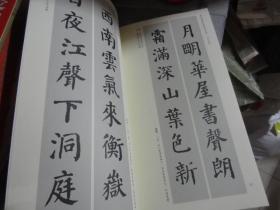 月明華屋書聲朗
霜滿深山葉色新
西南雲氣來衡嶽
日夜江聲下洞庭